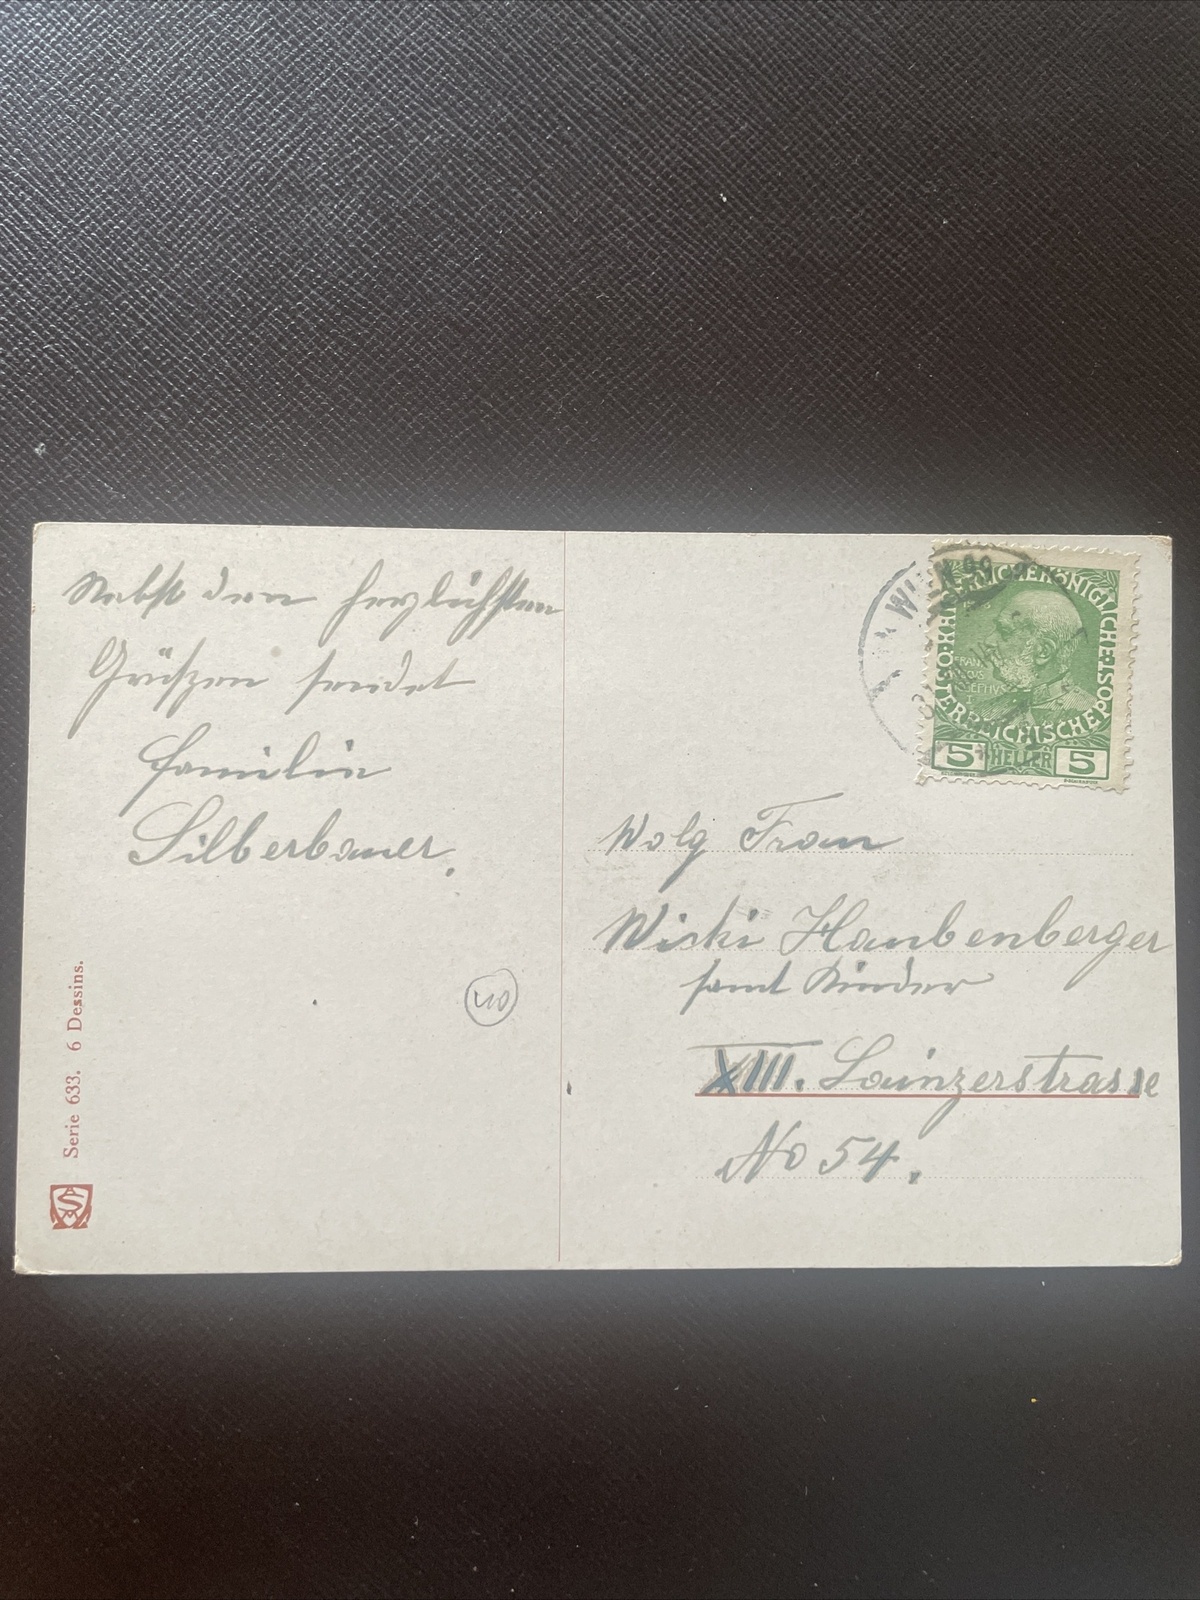 Nebst den herzlichsten
Grüßen sendet
Familie
Silberbauer.
Serie 633. 6 Dessins.
40
WIEN
KAISERLICHE KÖNIGLICHE
ÖSTERREICHISCHE POST
FRANCISCVS
IOSEPHVS
I
5 HELLER 5
Wolg Frau
Wicki Haubenberger
samt Kinder
XIII. Lainzerstrasse
No 54.